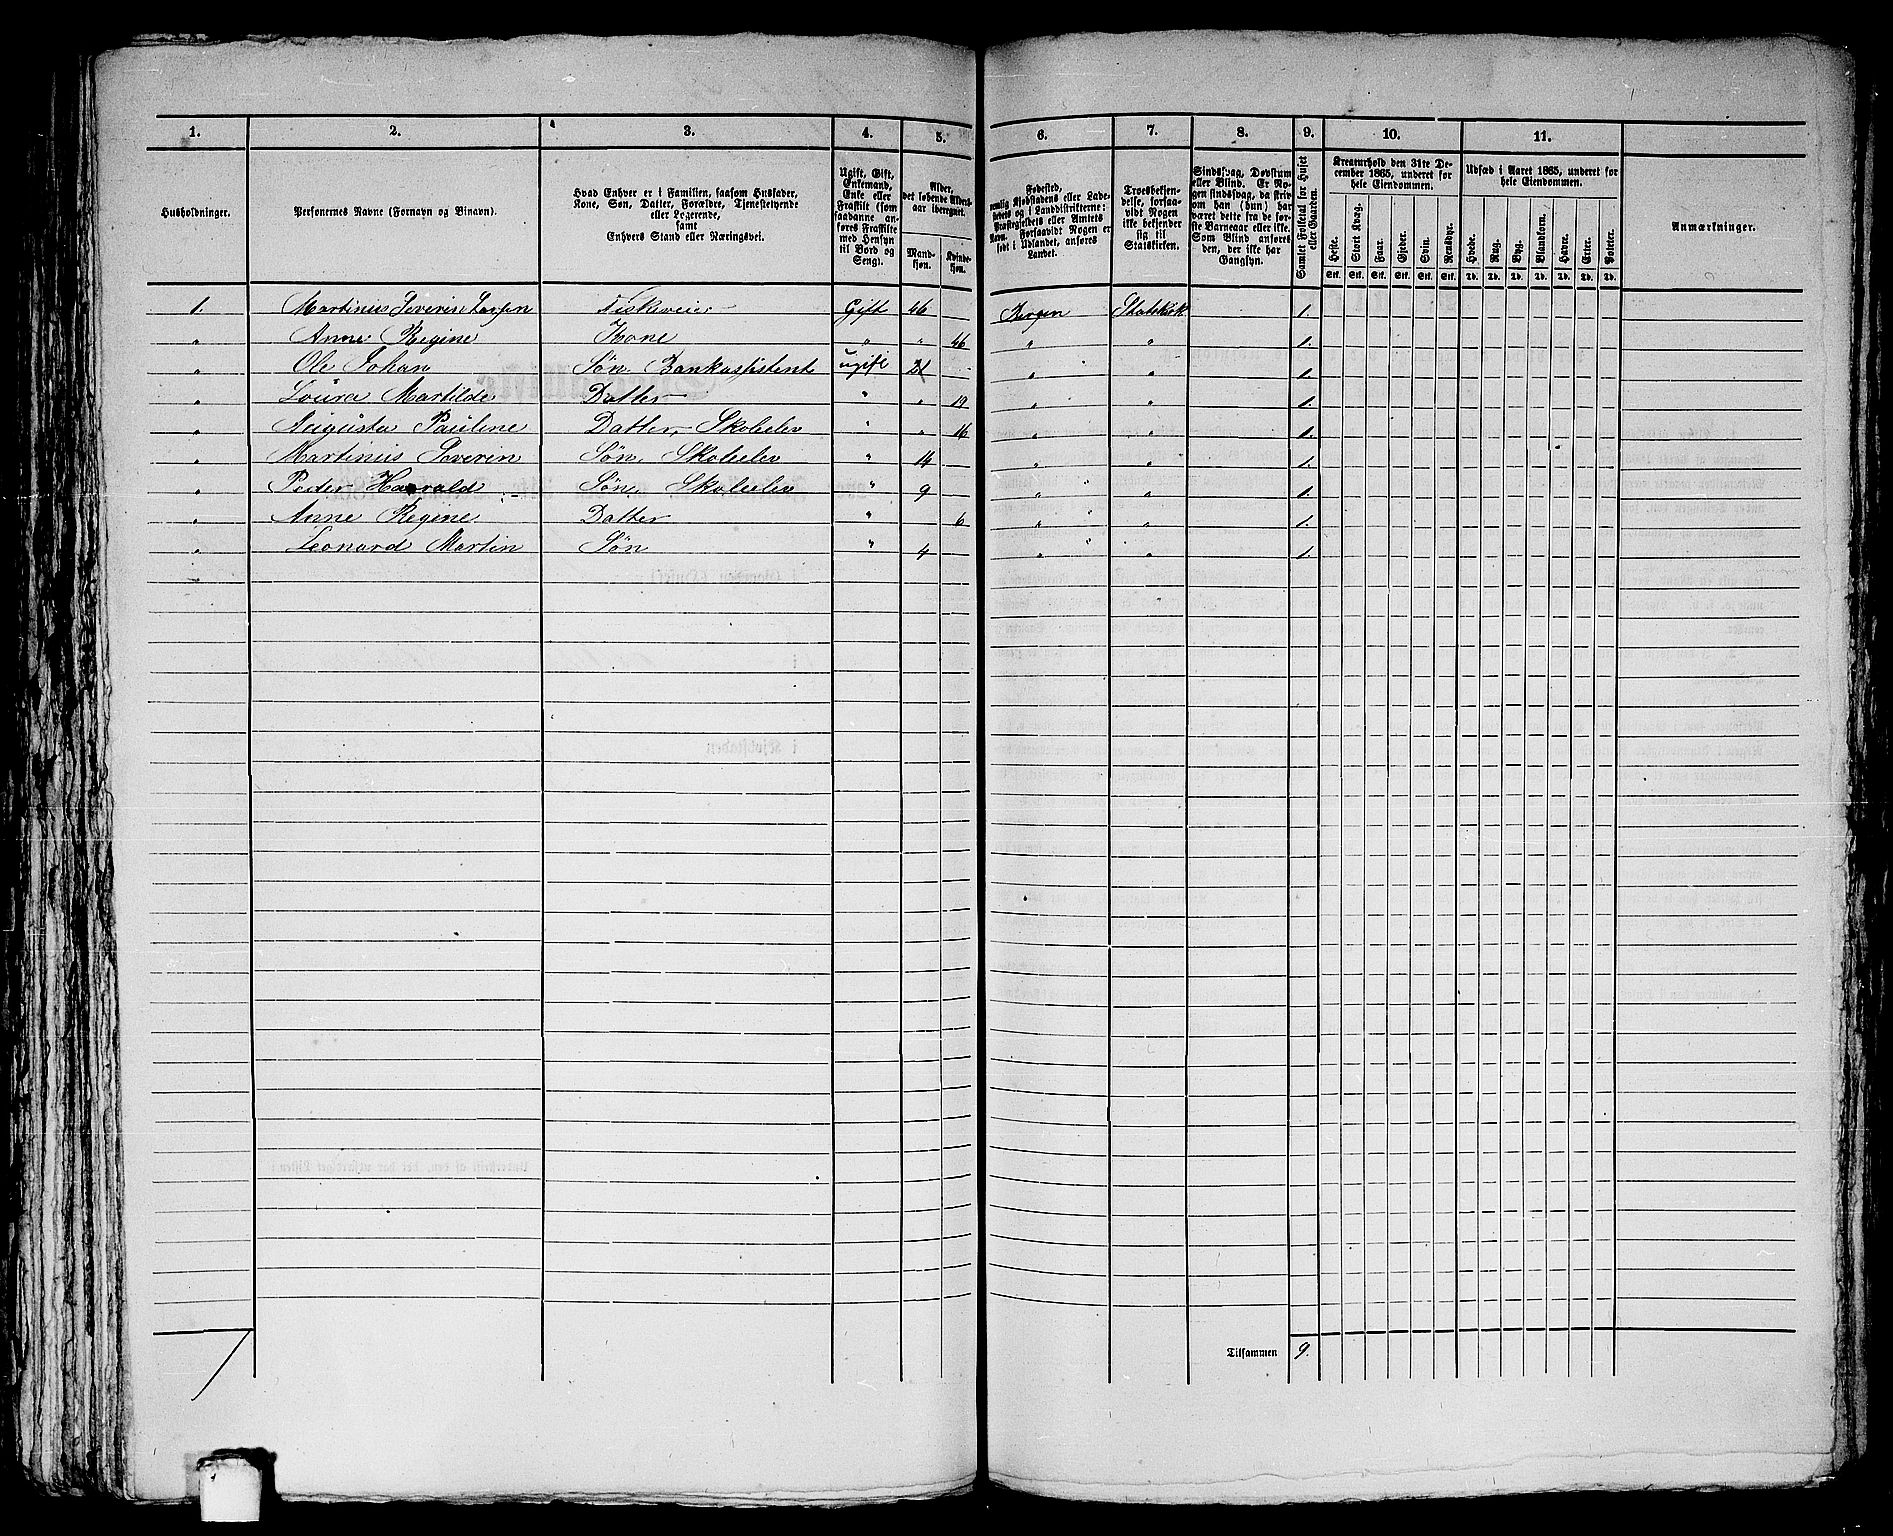 1. 2. 3. 4. 5. 6. 7. 8. 9. 10. 11.
Husholdninger.
Personernes Navne (Fornavn og Binavn).
Hvad Enhver er i Familien, saasom Husfader,
Kone, Søn, Datter, Forældre, Tjenestetyende
eller Logerende,
samt
Enhvers Stand eller Næringsvei.
Ugift, Gift,
Enkemand,
Enke eller
Fraskilt (som
saadanne an-
føres Fraskilte
med Hensyn
til Bord og
Seng).
Alder,
det løbende Alders-
aar iberegnet.
Mand-
kjøn.
Kvinde-
kjøn.
Fødested,
nemlig Kjøbstadens eller Lade-
stedets og i Landdistrikterne:
Præstegjeldets eller Amtets
Navn. Forsaavidt Nogen er
født i Udlandet, anføres
Landet.
Troesbekjen-
delse, forsaa-
vidt Nogen
ikke bekjender
sig til
Statskirken.
Sindssvag, Døvstum
eller Blind. Er No-
gen sindssvag, da skriv
om han (hun) har
været dette fra de før-
ste Barneaar eller ikke.
Som Blind anføres
den, der ikke har
Gangsyn.
Samlet Folketal for Huset
eller Gaarden.
Kreaturhold den 31te De-
cember 1865, underet for
hele Eiendommen.
Heste. Stort Kvæg. Faar. Gjeder. Svin. Rensdyr.
Stk. Stk. Stk. Stk. Stk. Stk.
Udsæd i Aaret 1865, underet for
hele Eiendommen.
Hvede. Rug. Byg. Blandkorn. Havre. Erter. Poteter.
Td. Td. Td. Td. Td. Td. Td.
Anmærkninger.
1. Martinus Severin Larsen Fiskveier Gift 46 Bergen Statskirk 1.
" Anne Regine Kone " " 46 " " 1.
" Ole Johan Søn, Bankassistent ugift 21 " " 1.
" Loura Martilde Datter " " 19 " " 1.
" Augusta Pauline Datter, Skoleelev " " 16 " " 1.
" Martinus Severin Søn, Skoleelev " 14 " " 1.
" Peder Harald Søn, Skoleelev " 9 " " 1.
" Anne Regine Datter " 6 " " 1.
" Leonard Martin Søn " 4 " " 1.
Tilsammen 9.